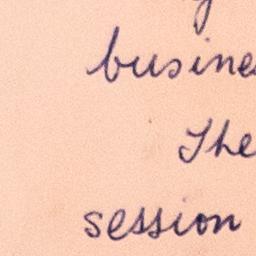 busine
The
session